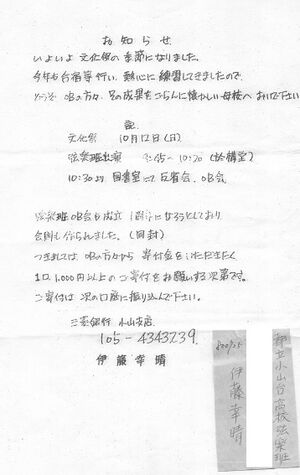 お知らせ
いよいよ文化祭の季節になりました。
今年も合宿等行い、熱心に練習してきましたので、
どうぞ、OBの方々、その成果をごらんに懐かしい母校へおいで下さい
記
文化祭 10月12日(日)
弦楽班出演 9:45～10:20 (於講堂)
10:30より 図書室にて 反省会、OB会
弦楽班OB会も成立
会則も作られました。(同封)
つきましては OBの方から 寄付金をいただきたく
1口 1,000円以上のご寄付をお願いする次第です。
ご寄付は 次の口座に振り込んで下さい。
三菱銀行 小山支店
105-4343239
伊藤幸晴
都立小山台高校弦楽班
伊藤幸晴